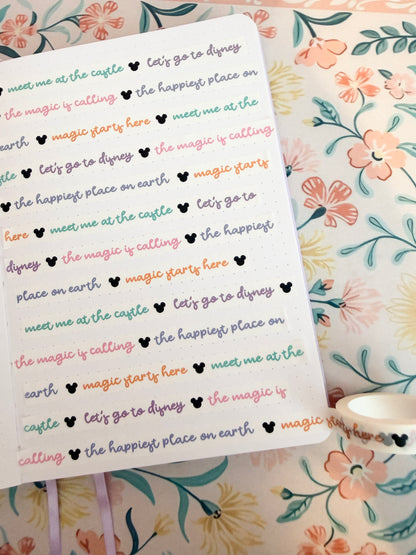 meet me at the castle let's go to disney
the magic is calling the happiest place on
earth magic starts here meet me at the
castle let's go to disney the magic is calling
the happiest place on earth magic starts
here meet me at the castle let's go to
disney the magic is calling the happiest
place on earth magic starts here
meet me at the castle let's go to disney
the magic is calling the happiest place on
earth magic starts here meet me at the
castle let's go to disney the magic is
calling the happiest place on earth magic starts here